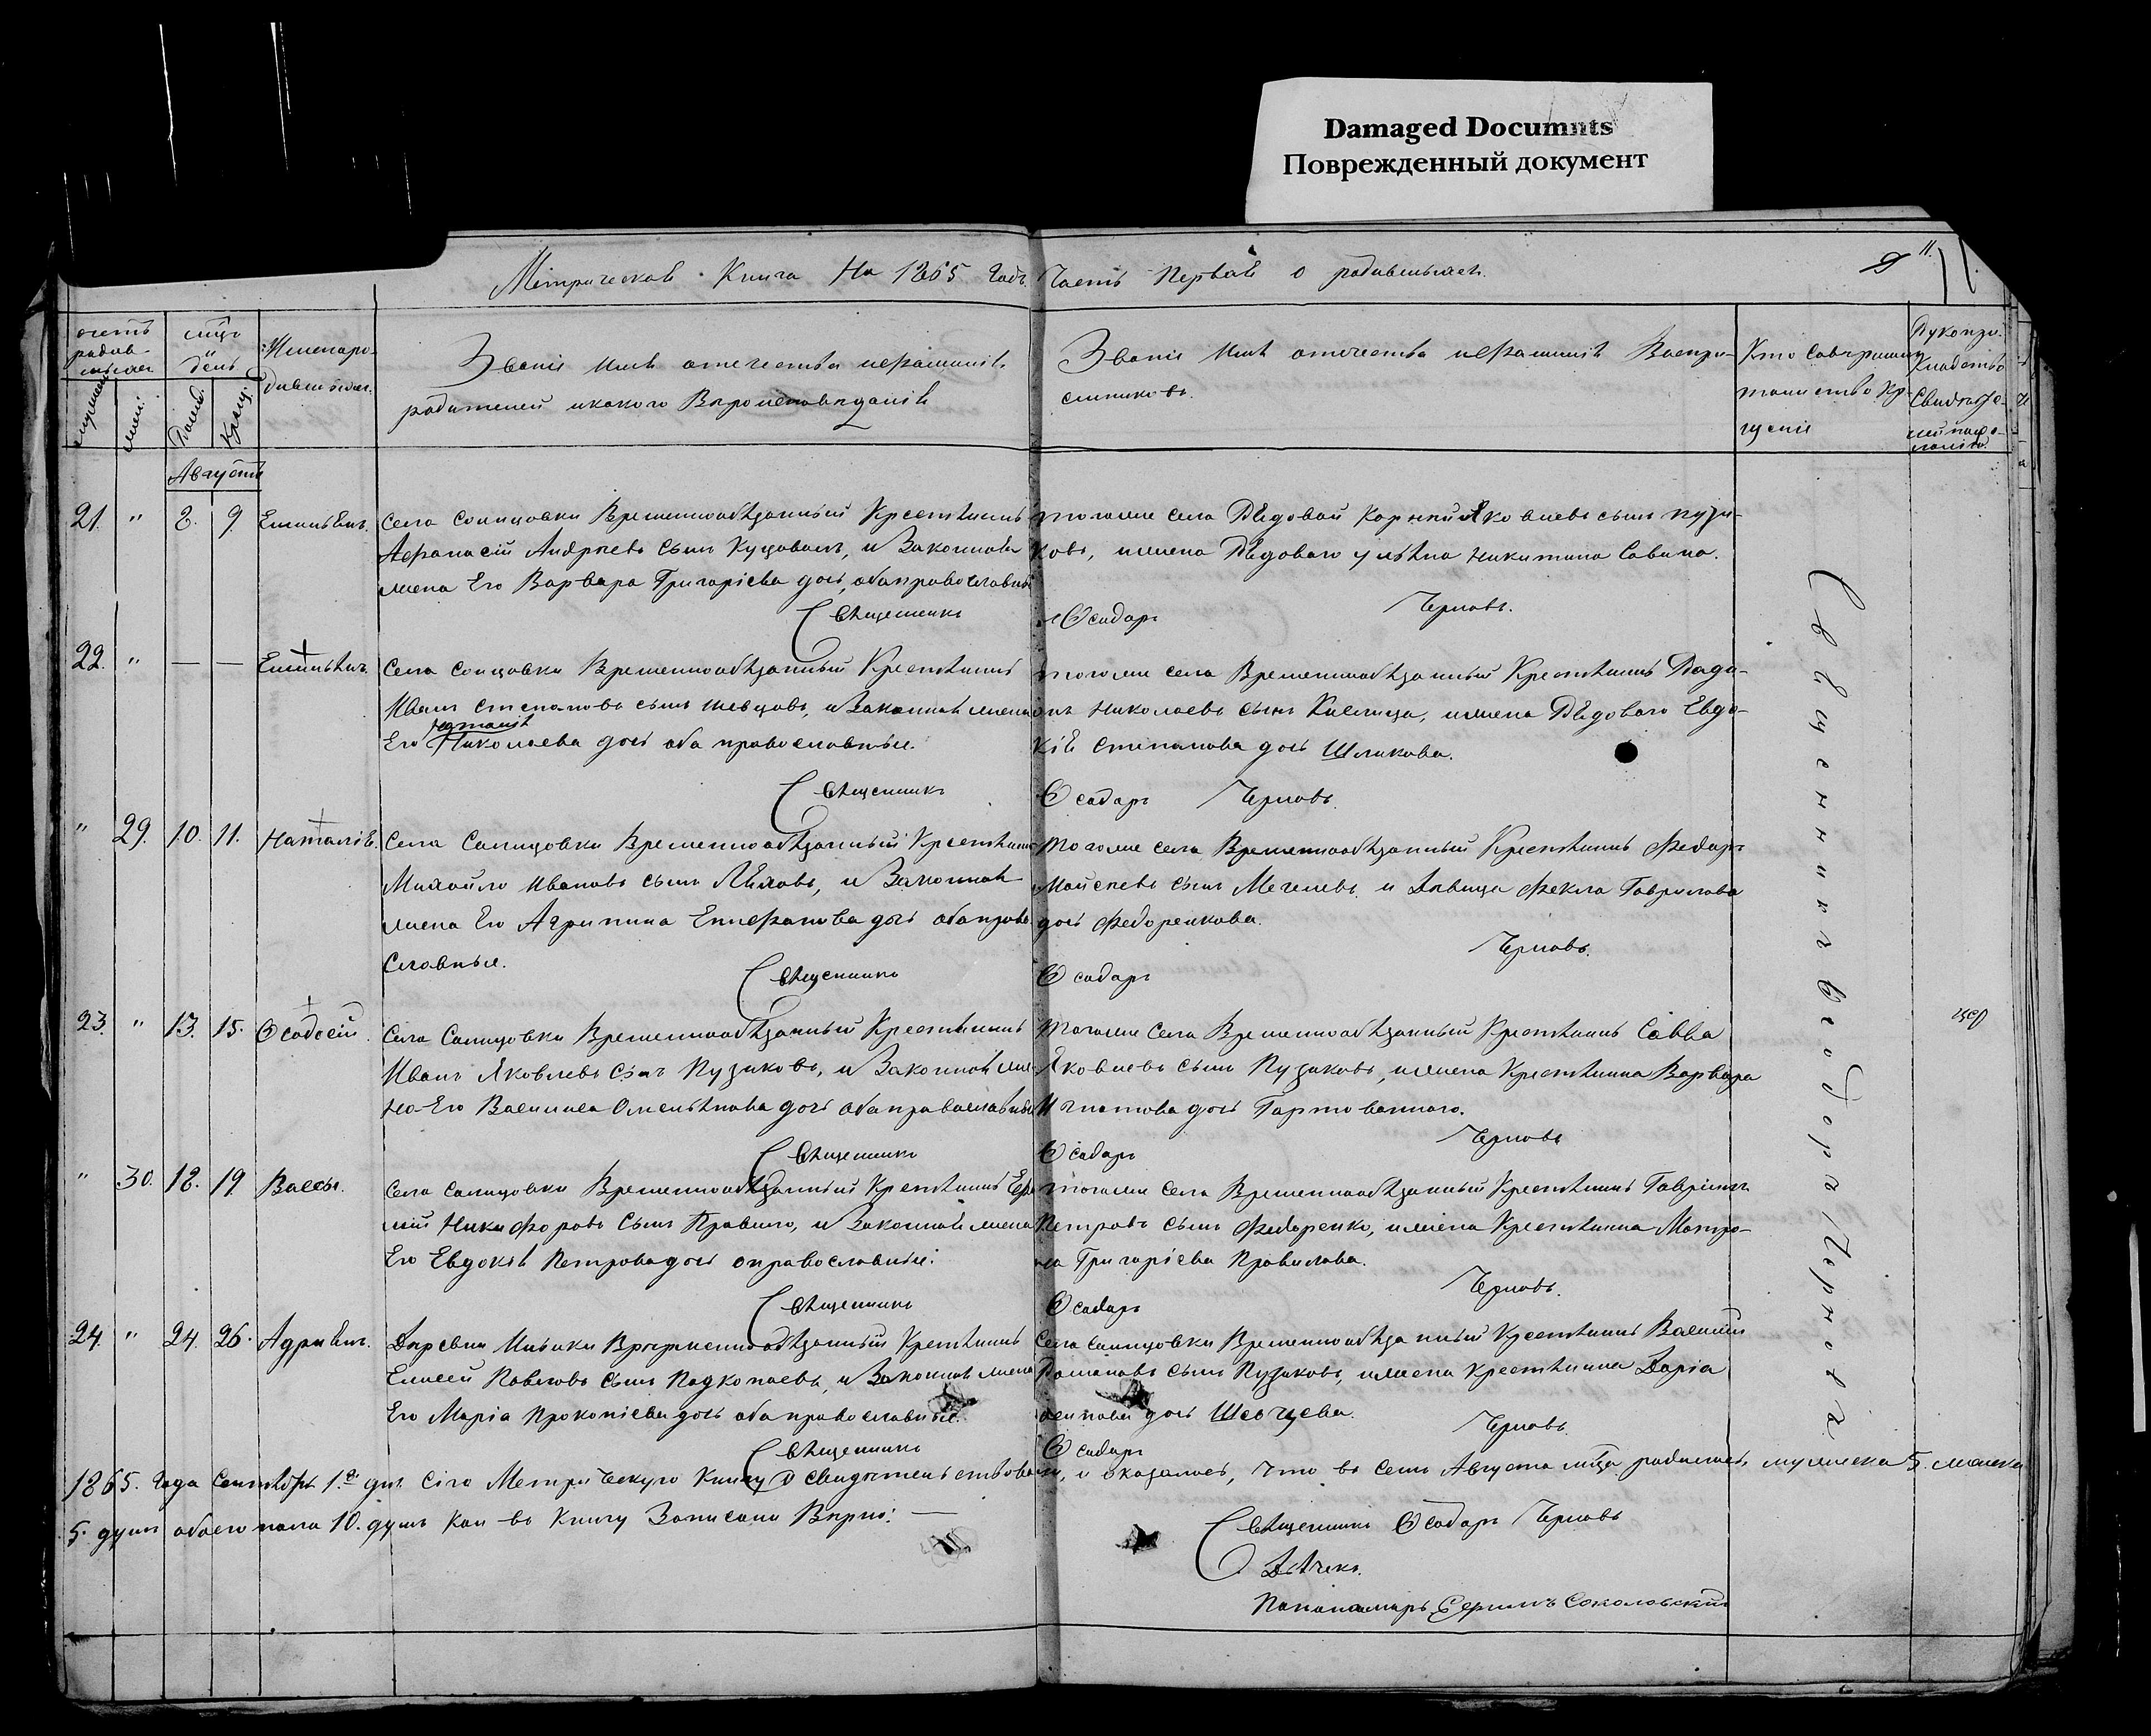 Damaged Documnts
Поврежденный документ
Метрическая Книга На 1865 годъ. Часть Первая о родившыхся.
9 11
счетъ родив- шыхся
мужеск.
женс.
мцъ и день
Рожд.
Крещ.
Имена ро- дившыхся.
Званіе имя отечество и фамилія
родителей и какого Вѣроисповѣданія
Званіе имя отечество и фамилія Воспри-
емниковъ.
Кто Совершилъ
таинство Кре-
щенія
Рукопри-
кладство
Свидѣте-
лей по же-
ланію.
Августъ
21. " 2. 9. Емильянъ. Села Солнцовки Временнообязанный Крестьянинъ
Афанасій Андреевъ сынъ Куцоволъ, и Законная
жена Его Варвара Григоріева дочь, оба православные
тогоже села Рядовой Корнѣй Яковлевъ сынъ Пузи-
ковъ, и жена Рядоваго Улѣяна Никитина Савина.
Священникъ Ѳеодоръ Черновъ.
22. " — — Емильянъ. Села Сонцовки Временнообязанный Крестьянинъ
Иванъ Степановъ сынъ Шевцовъ, и Законная жена
Его Наталія Николаева дочь оба православные.
тогоже села Временнообязанный Крестьянинъ Роди-
онъ Николаевъ сынъ Кислица, и жена Рядоваго Евдо-
кія Степанова дочь Шликова.
Священникъ Ѳеодоръ Черновъ.
" 29. 10. 11. Наталія. Села Солнцовки Временнообязанный Крестьянинъ
Михайло Ивановъ сынъ Ляховъ, и Законная
жена Его Агрипина Епифанова дочь оба право-
славные.
Тогоже села Временнообязанный Крестьянинъ Федоръ
Моисеевъ сынъ Мечепевъ и Дѣвица Фекла Гаврилова
дочь Федоренкова.
Священникъ Ѳеодоръ Черновъ.
23. " 13. 15. Ѳеодосій. Села Солнцовки Временнообязанный Крестьянинъ
Иванъ Яковлевъ сынъ Пузиковъ, и Законная же-
на Его Василиса Омельянова дочь оба православные
Тогоже Села Временнообязанный Крестьянинъ Савва
Яковлевъ сынъ Пузиковъ, и жена Крестьянина Варвара
Игнатова дочь Гартованнаго.
Священникъ Ѳеодоръ Черновъ
" 30. 18. 19. Вассы. Села Солнцовки Временнообязанный Крестьянинъ
Никифоровъ сынъ Правило, и Законная жена
Его Евдокія Петрова дочь православные.
Тогоже Села Временнообязанный Крестьянинъ Гавріилъ
Петровъ сынъ Федоренко, и жена Крестьянина Матро-
на Григоріева Правилова.
Священникъ Ѳеодоръ Черновъ.
24. " 24. 26. Адріянъ. Деревни Временнообязанный Крестьянинъ
Елисей Павловъ сынъ Подкопаевъ, и Законная жена
Его Марія Прокопіева дочь оба православные.
Села Солнцовки Временнообязанный Крестьянинъ Василій
Романовъ сынъ Пузиковъ, и жена Крестьянина Дарія
Осипова дочь Шевчсева.
Священникъ Ѳеодоръ Черновъ.
Священникъ Ѳеодоръ Черновъ
1865. Года Сентября 1.го дня. Сію Метрическую Книгу Свидѣтельствовали, и оказалось, что въ семъ Августа мцѣ родилось, мужеска 5. женска
5. душъ обоего пола 10. душъ кои въ Книгу Записаны Вѣрно: —
Священникъ Ѳеодоръ Черновъ
Дьячекъ.
Пономарь Соколовскій